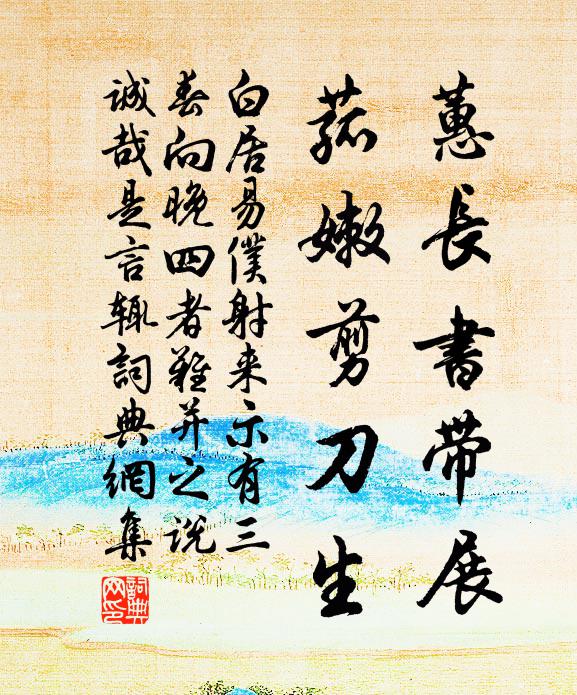 蕙長書帶展
菰嫩剪刀生
白居易僕射来示有三
春向晚四者難并之説
誠哉是言輒詞典網集
詞典
网印